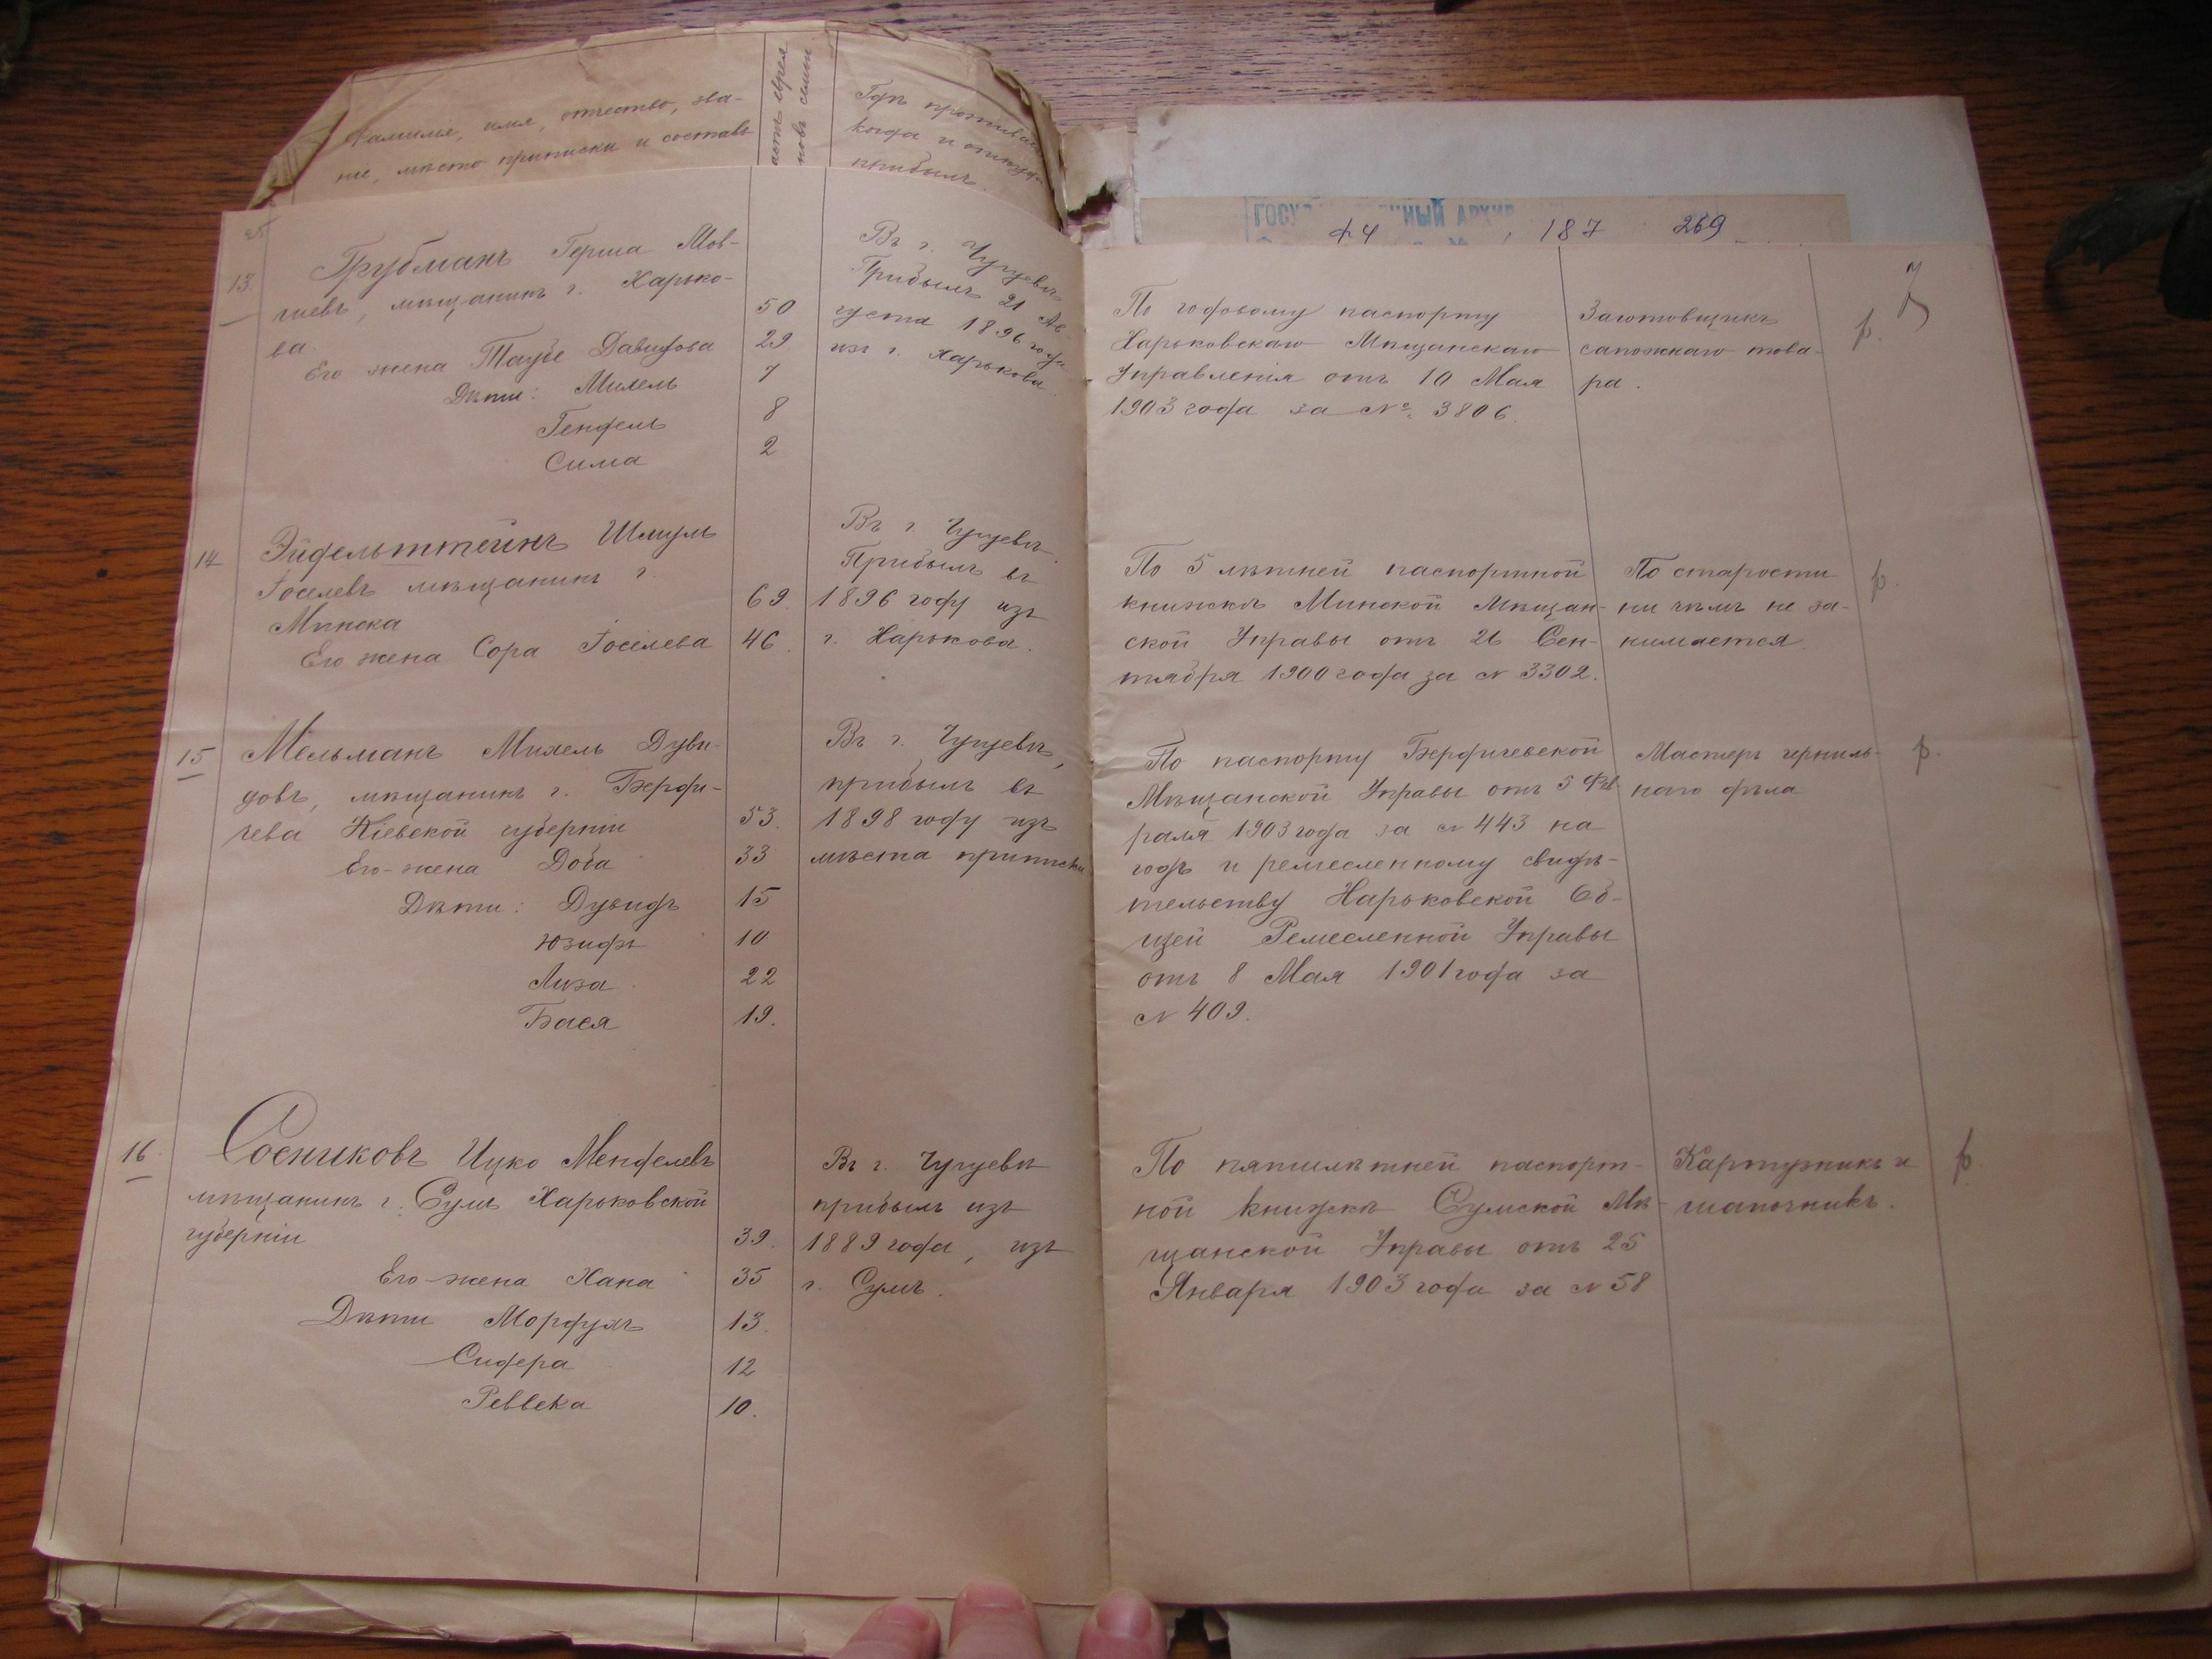 Фамилія, имя, отчество, зва-
ніе, мѣсто приписки и составъ
Гдѣ
когда и откуда
прибылъ.
ГОСУ ННЫЙ АРХИВ
ф4 187 269
7
13
Трубманъ Герша Мов-
шевъ, мѣщанинъ г. Харько-
ва 50
Его жена Таубе Давидова 29
Дѣти: Михель 7
Гендель 8
Сима 2
Въ г. Чугуевѣ
Прибылъ 21 Ав-
густа 1896 года
изъ г. Харькова
По годовому паспорту
Харьковскаго Мѣщанскаго
Управленія отъ 10 Мая
1903 года за № 3806.
Заготовщикъ
сапожнаго това-
ра.
р.
14
Эйдельштейнъ Шмуль
Іоселевъ мѣщанинъ г.
Минска 69.
Его жена Сора Іоселева 46.
Въ г. Чугуевѣ.
Прибылъ въ
1896 году изъ
г. Харькова.
По 5 лѣтней паспортной
книжкѣ Минской Мѣщан-
ской Управы отъ 26 Сен-
тября 1900 года за № 3302.
По старости
ни чѣмъ не за-
нимается.
р.
15
Мельманъ Михель Дуви-
довъ, мѣщанинъ г. Берди-
чева Кіевской губерніи 53.
Его-жена Доба 33
Дѣти: Дувидъ 15
Юзифъ 10
Лиза 22
Бася 19.
Въ г. Чугуевѣ,
прибылъ въ
1898 году изъ
мѣста приписки
По паспорту Бердичевской
Мѣщанской Управы отъ 5 Фев
раля 1903 года за № 443 на
годъ и ремесленному свидѣ-
тельству Харьковской Об-
щей Ремесленной Управы
отъ 8 Мая 1901 года за
№ 409.
Мастеръ черниль-
наго дѣла
р.
16
Сосниковъ Ицко Менделевъ
мѣщанинъ г. Сумъ Харьковской
губерніи 39.
Его-жена Хана 35
Дѣти Мордухъ 13.
Сифера 12
Реввека 10.
Въ г. Чугуевѣ
прибылъ изъ
1889 года, изъ
г. Сумъ.
По пятилѣтней паспорт-
ной книжкѣ Сумской Мѣ-
щанской Управы отъ 25
Января 1903 года за № 58
Картузникъ и
шапочникъ.
р.